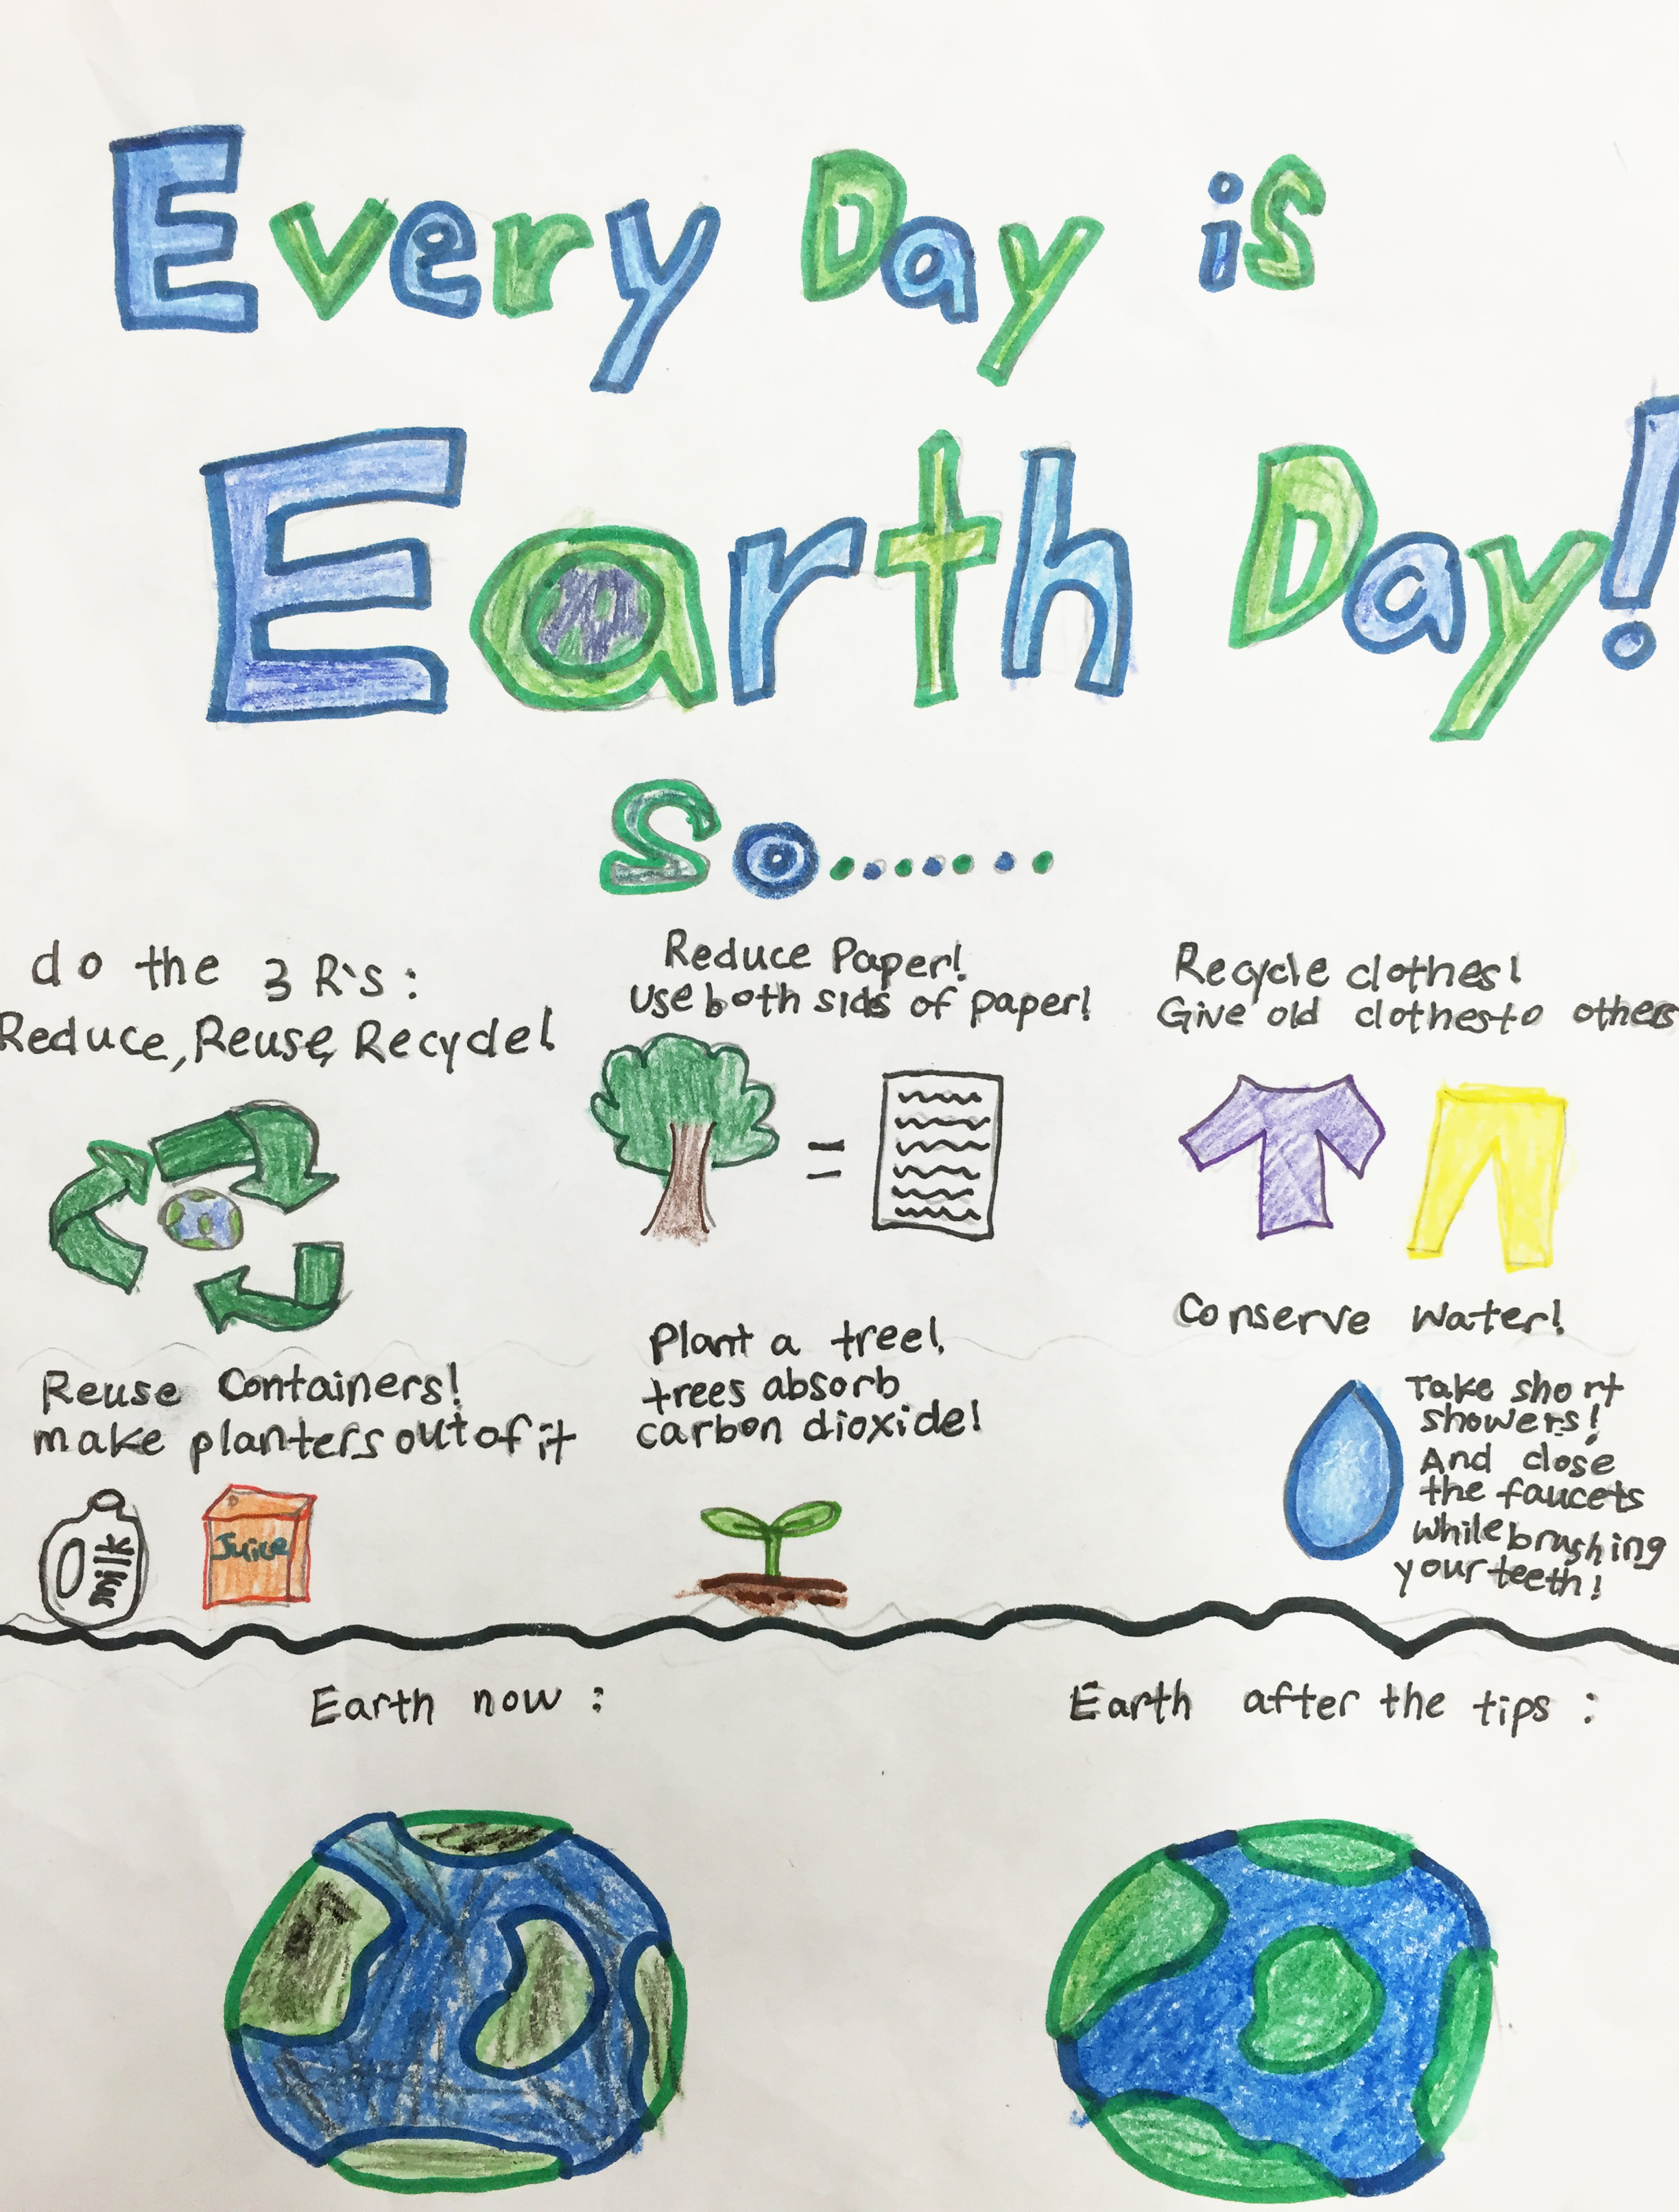 Every Day is
Earth Day!
So.......
do the 3 R's:
Reduce, Reuse, Recycle!
Reduce Paper!
Use both sids of paper!
Recycle clothes!
Give old clothes to others
=
Reuse Containers!
make planters out of it
milk
Juice
Plant a tree!
trees absorb
carbon dioxide!
Conserve Water!
Take short
showers!
And close
the faucets
while brushing
your teeth!
Earth now:
Earth after the tips: